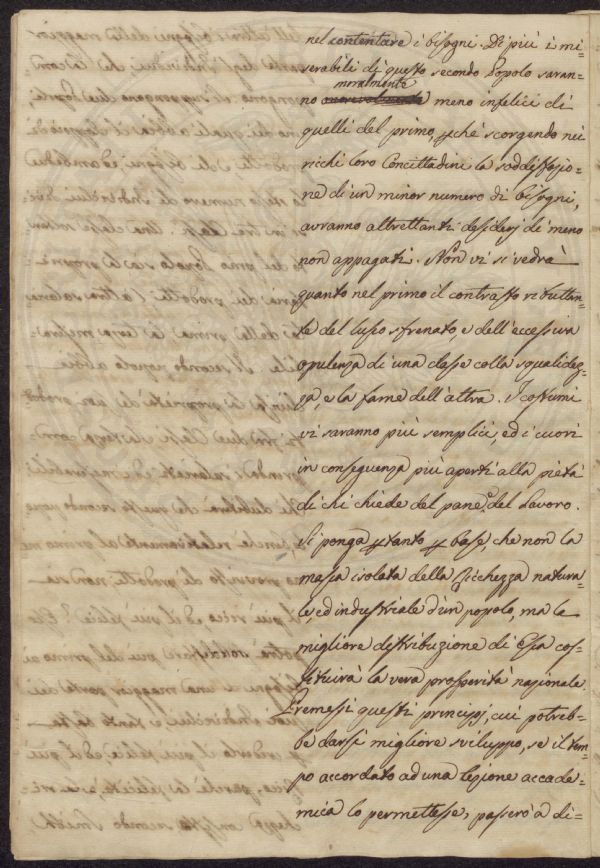 nel contentare i bisogni. Di più i mi=
serabili di questo secondo Popolo saran=
moralmente
no meno infelici di
quelli del primo, pchè scorgendo nei
ricchi loro Concittadini la soddisfazio=
ne di un minor numero di bisogni,
avranno altrettanti desiderj di meno
non appagati. Non vi si vedrà
quanto nel primo il contrasto ributtan=
te del lusso sfrenato, e dell'eccessiva
opulenza di una classe colla squalidez=
za, e la fame dell'altra. I costumi
vi saranno più semplici, ed i cuori
in conseguenza più aperti alla pietà
di chi chiede del pane, o del Lavoro.
Si ponga ptanto p base, che non la
massa isolata della Ricchezza natura=
le, ed industriale d'un popolo, ma la
migliore distribuzione di Essa cos=
tituirà la vera prosperità nazionale.
Premessi questi principj, cui potreb=
be darsi migliore sviluppo, se il tem=
po accordato ad una lezione accade=
mica lo permettesse, passerò a di=